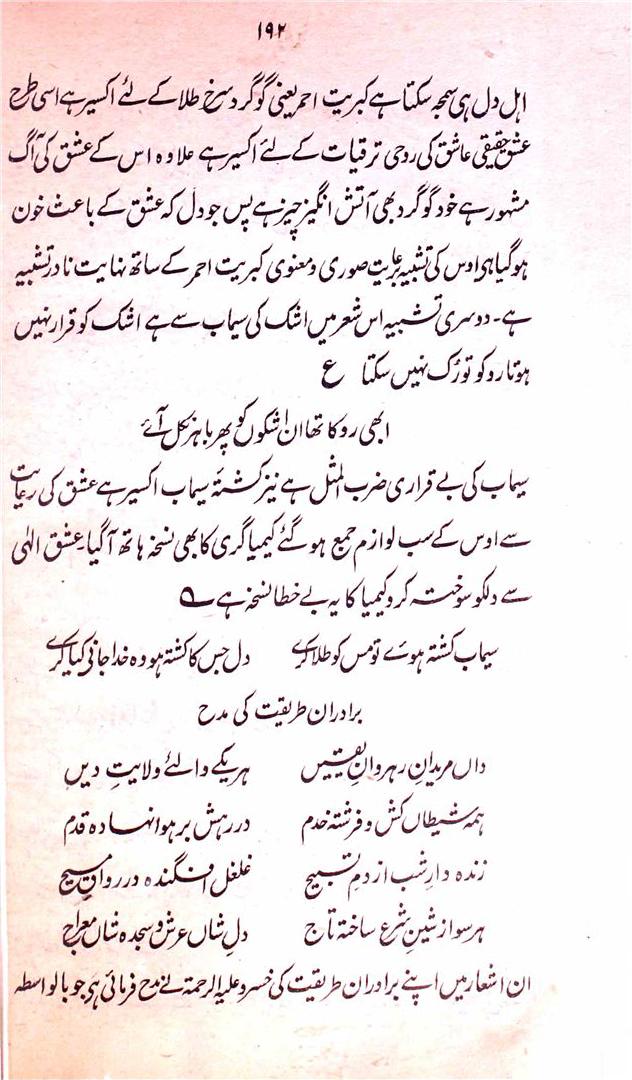 ۱۹۲
اہل دل ہی سمجھ سکتا ہے کبریت احمر یعنی گوگرد سرخ طلا کے لئے اکسیر ہے اسی طرح
عشق حقیقی عاشق کی روحی ترقیات کے لئے اکسیر ہے علاوہ اس کے عشق کی آگ
مشہور ہے خود گوگرد بھی آتش انگیز چیز ہے پس جو دل کہ عشق کے باعث خون
ہو گیا ہی اوس کی تشبیہ برعایت صوری و معنوی کبریت احمر کے ساتھ نہایت نادر تشبیہ
ہے۔ دوسری تشبیہ اس شعر میں اشک کی سیماب سے ہے اشک کو قرار نہیں
ہوتا روکو تو رُک نہیں سکتا ع
ابھی روکا تھا ان اشکوں کو پھر باہر نکل آئے
سیماب کی بے قراری ضرب المثل ہے نیز کشتۂ سیماب اکسیر ہے عشق کی رعایت
سے اوس کے سب لوازم جمع ہو گئے کیمیا گری کا بھی نسخہ ہاتھ آ گیا۔ عشق الٰہی
سے دلکو سوختہ کرو کیمیا کا یہ بے خطا نسخہ ہے ۵
سیماب کشتہ ہوئے تو مس کو طلا کرے دل جس کا کشتہ ہو وہ خدا جانے کیا کرے
برادران طریقت کی مدح
داں مریدانِ رہروانِ یقیں ہر یکے والئے ولایتِ دیں
ہمہ شیطاں کش و فرشتہ خدم در رہش بر ہوا نہادہ قدم
زندہ دارِ شب از دمِ تسبیح غلغل افگندہ در روانِ مسیح
ہر سو از شینِ شرع ساختہ تاج دلِ شاں عرش و سجدہ شاں معراج
ان اشعار میں اپنے برادران طریقت کی خسرو علیہ الرحمۃ نے مدح فرمائی ہی جو بالواسطہ